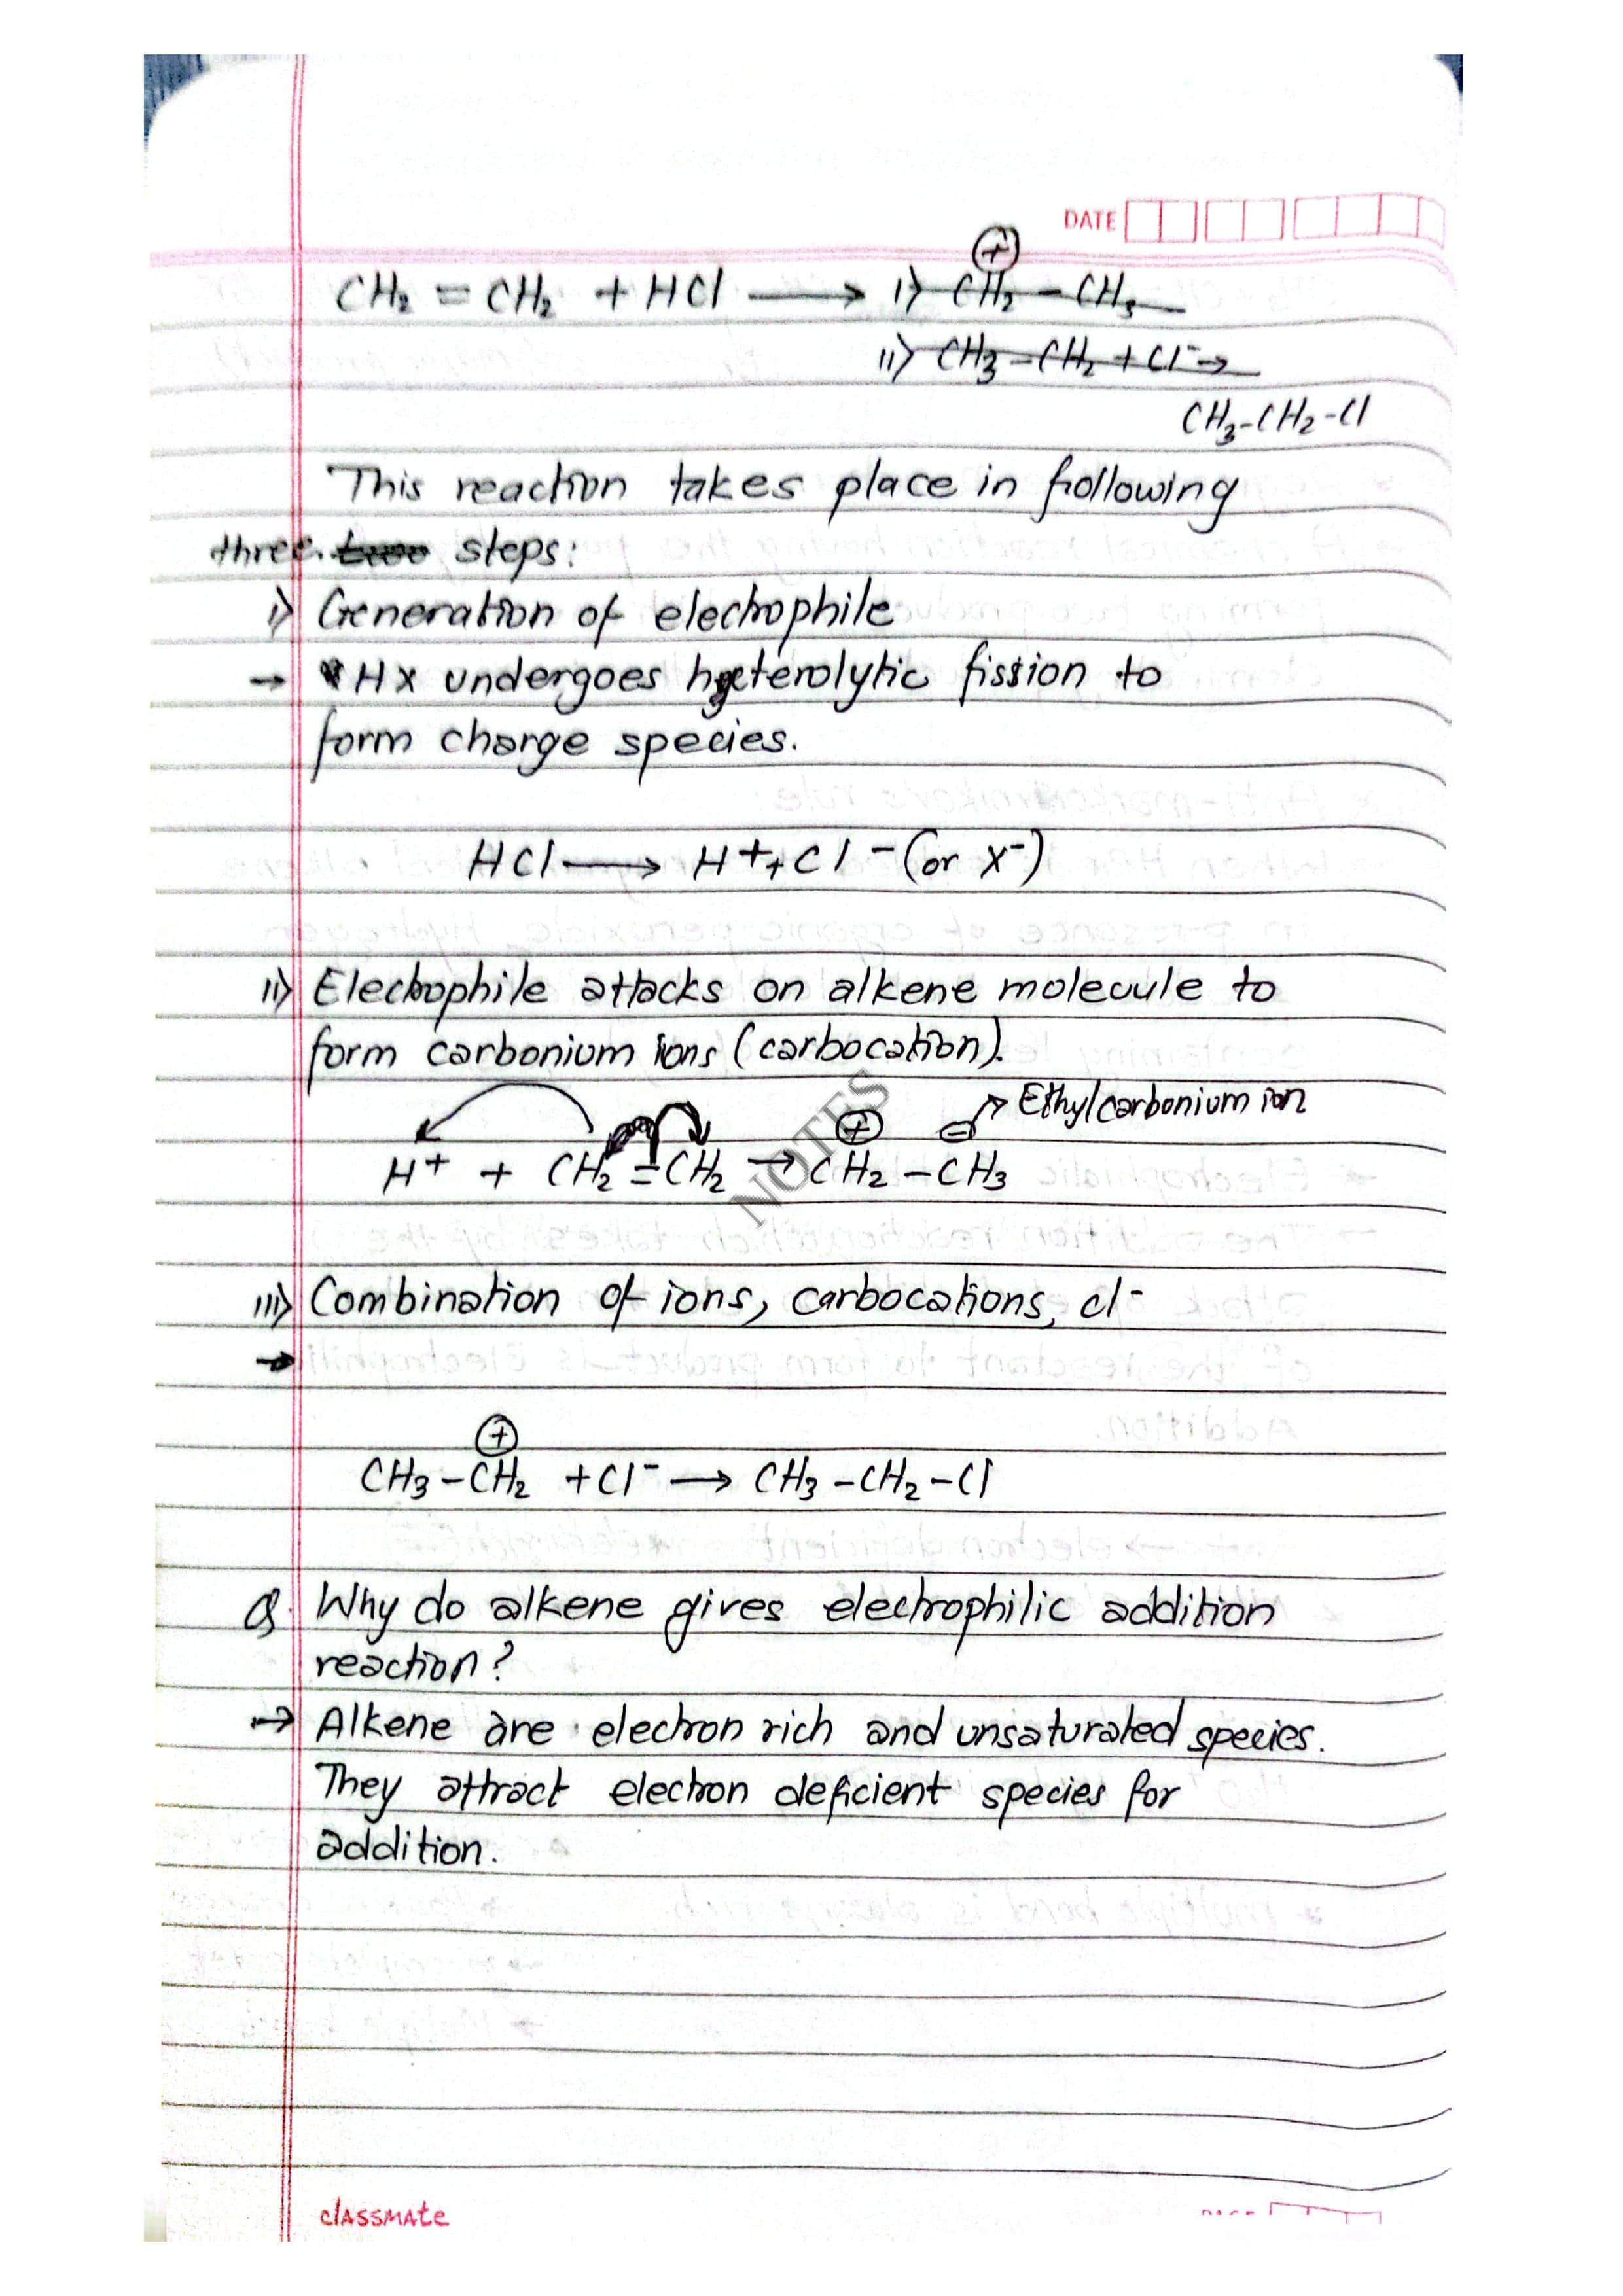 DATE
CH₂ = CH₂ + HCl ⟶ i) C⊕H₂ - CH₃
ii) CH₃ - CH₂ + Cl⁻ →
CH₃-CH₂-Cl
This reaction takes place in following
three. two steps:
i) Generation of electrophile
→ HX undergoes heterolytic fission to
form charge species.
HCl ⟶ H⁺ + Cl⁻ (or X⁻)
ii) Electrophile attacks on alkene molecule to
form carbonium ions (carbocation).
→ Ethylcarbonium ion
⊕ ⊖
H⁺ + CH₂ = CH₂ → CH₂ - CH₃
NOTES
iii) Combination of ions, carbocations, cl⁻
→
⊕
CH₃-CH₂ + Cl⁻ ⟶ CH₃-CH₂-Cl
Q. Why do alkene gives electrophilic addition
reaction?
→ Alkene are electron rich and unsaturated species.
They attract electron deficient species for
addition.
classmate